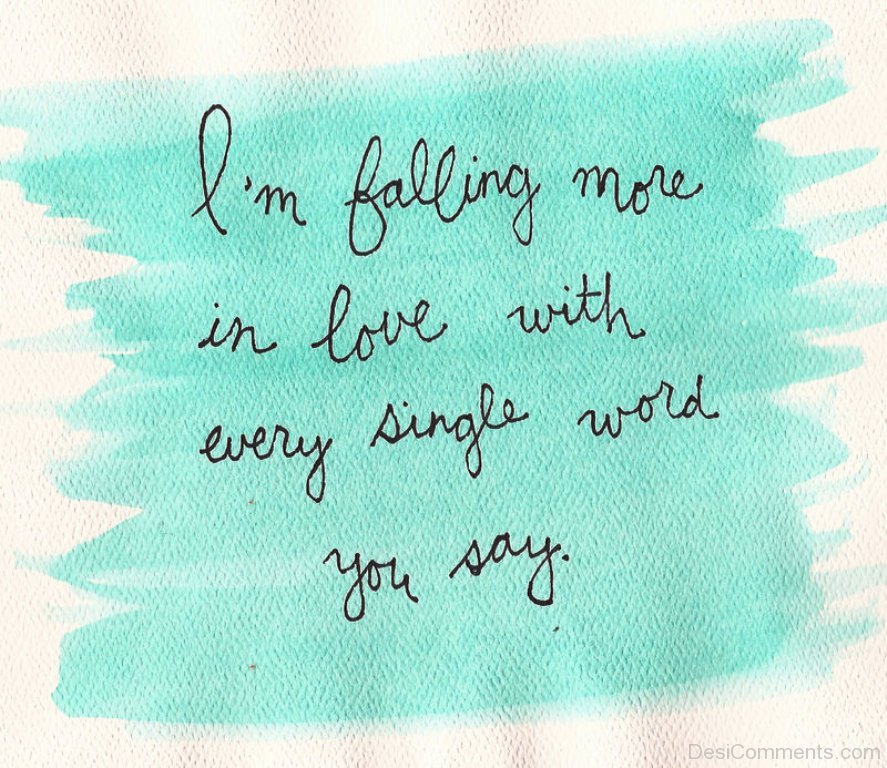 I'm falling more
in love with
every single word
you say.
DesiComments.com